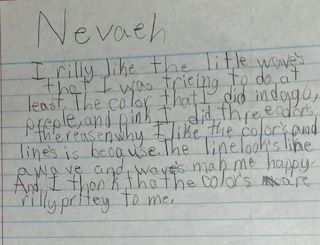 Nevaeh
I rilly like the little waves
that I was trieing to do at
least. The color that I did indago,
preple, and pink I did three colors
thereasen why I like the color's and
line's is because. The line look's like
a wave and wave's mak me happy.
And, I thank thathe color's are
rilly pritey to me.